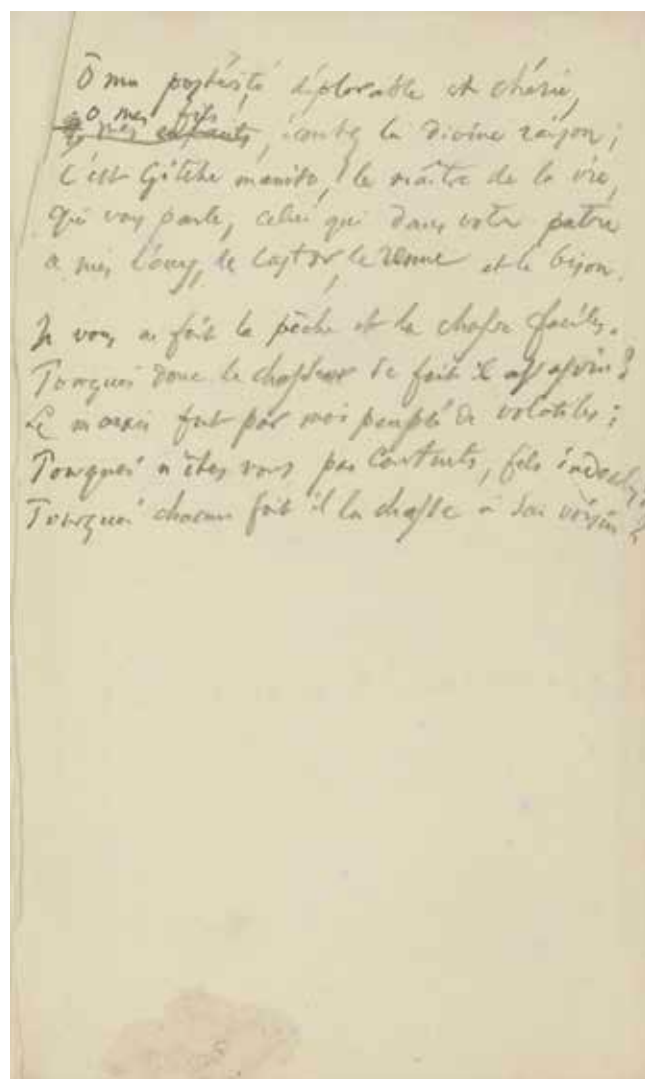 Ô ma postérité déplorable et chérie,
o mes fils
mes enfants, écoutez la divine raison;
C'est Gitche manito, le maître de la vie,
Qui vous parle, celui qui dans votre patrie
a mis l'ours, le castor, le renne et le bison.
Je vous ai fait la pêche et la chasse faciles.
Pourquoi donc le chasseur se fait il assassin?
Le marais fut par moi peuplé de volatiles;
Pourquoi n'êtes vous pas contents, fils indociles?
Pourquoi chacun fait il la chasse à son voisin?